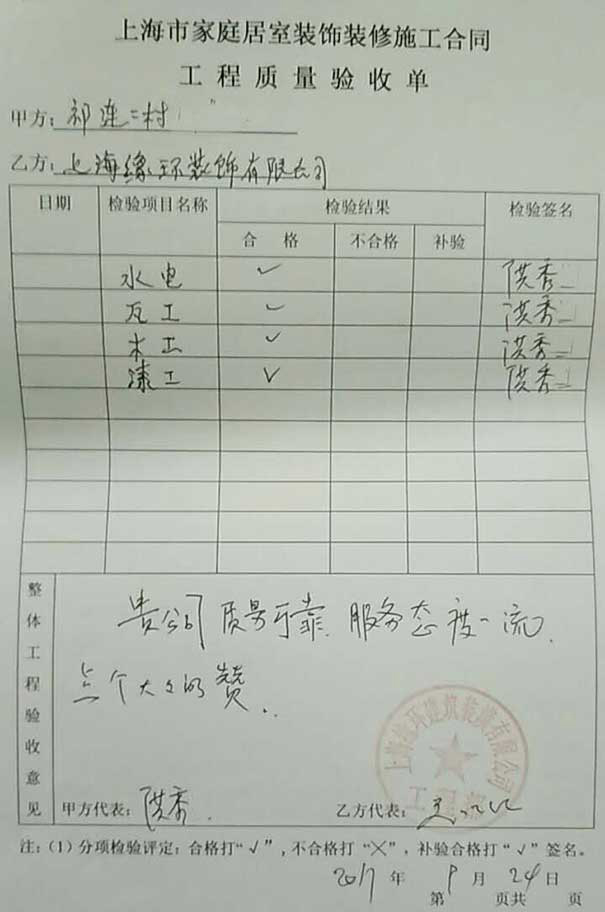 上海市家庭居室装饰装修施工合同
工程质量验收单
甲方：祁连二村
乙方：上海缘环装饰有限公司
日期 检验项目名称 检验结果 检验签名
合格 不合格 补验
水电 ✓ 洪秀
瓦工 ✓ 洪秀
木工 ✓ 洪秀
漆工 ✓ 洪秀
整体工程验收意见
贵公司质量可靠.服务态度一流.
点个大大的赞.
甲方代表：洪秀
乙方代表：
环建筑装潢有限公司
注：(1)分项检验评定：合格打“√”，不合格打“╳”，补验合格打“√”签名。
2017年9月24日
第 页共 页